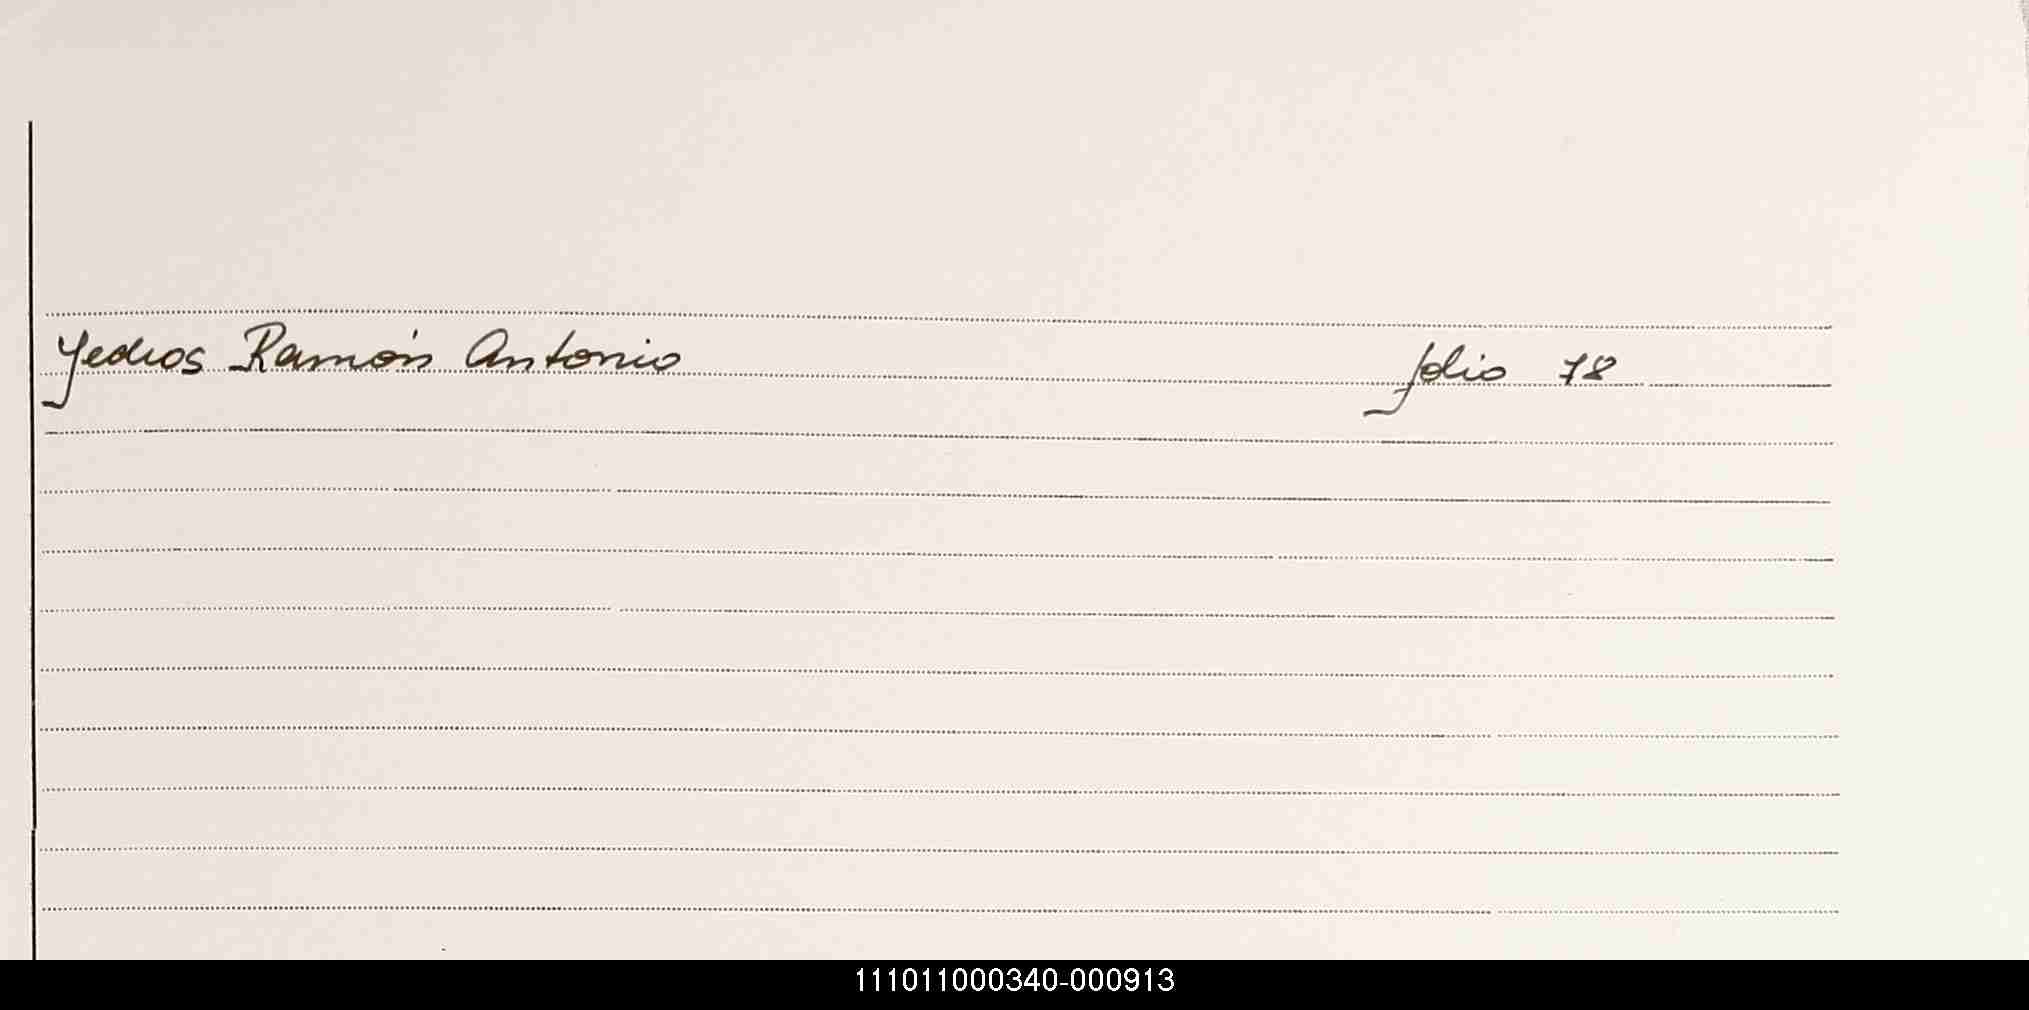 Yedros Ramón Antonio folio 78
111011000340-000913